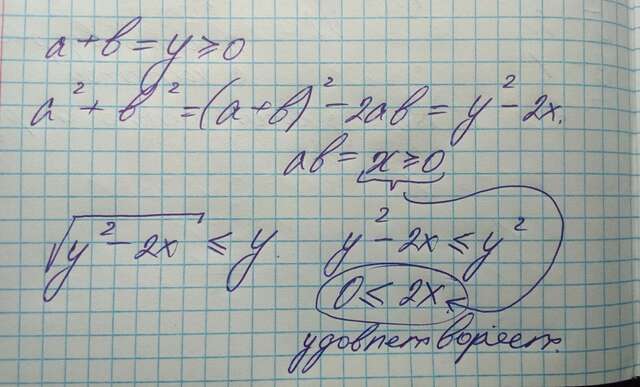 a+b=y≥0
a²+b²=(a+b)²-2ab=y²-2x.
ab=x≥0
√(y²-2x) ≤ y y²-2x≤y²
0≤2x
удовлетворяет.